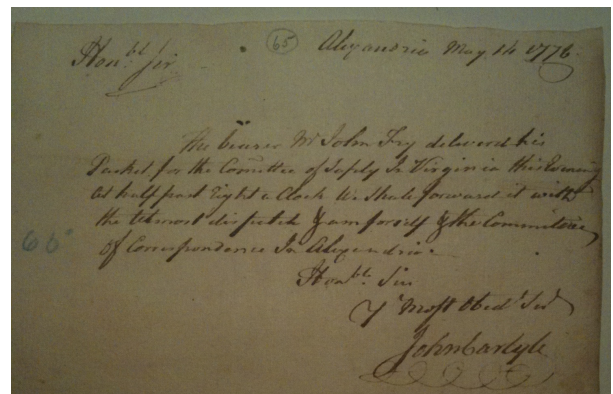 65
Alexandria May 14 1776.
Honbl Sir
The bearer Mr John Fry deliverd his
Packet for the Comittee of Safety In Virginia this Evening
at half past Eight a Clock We Shall forward it with
the utmost dispatch I am for self & the Committee
of Correspondence In Alexandria
66
Honble Sir
Yr Most Obedt Sert
John Carlyle